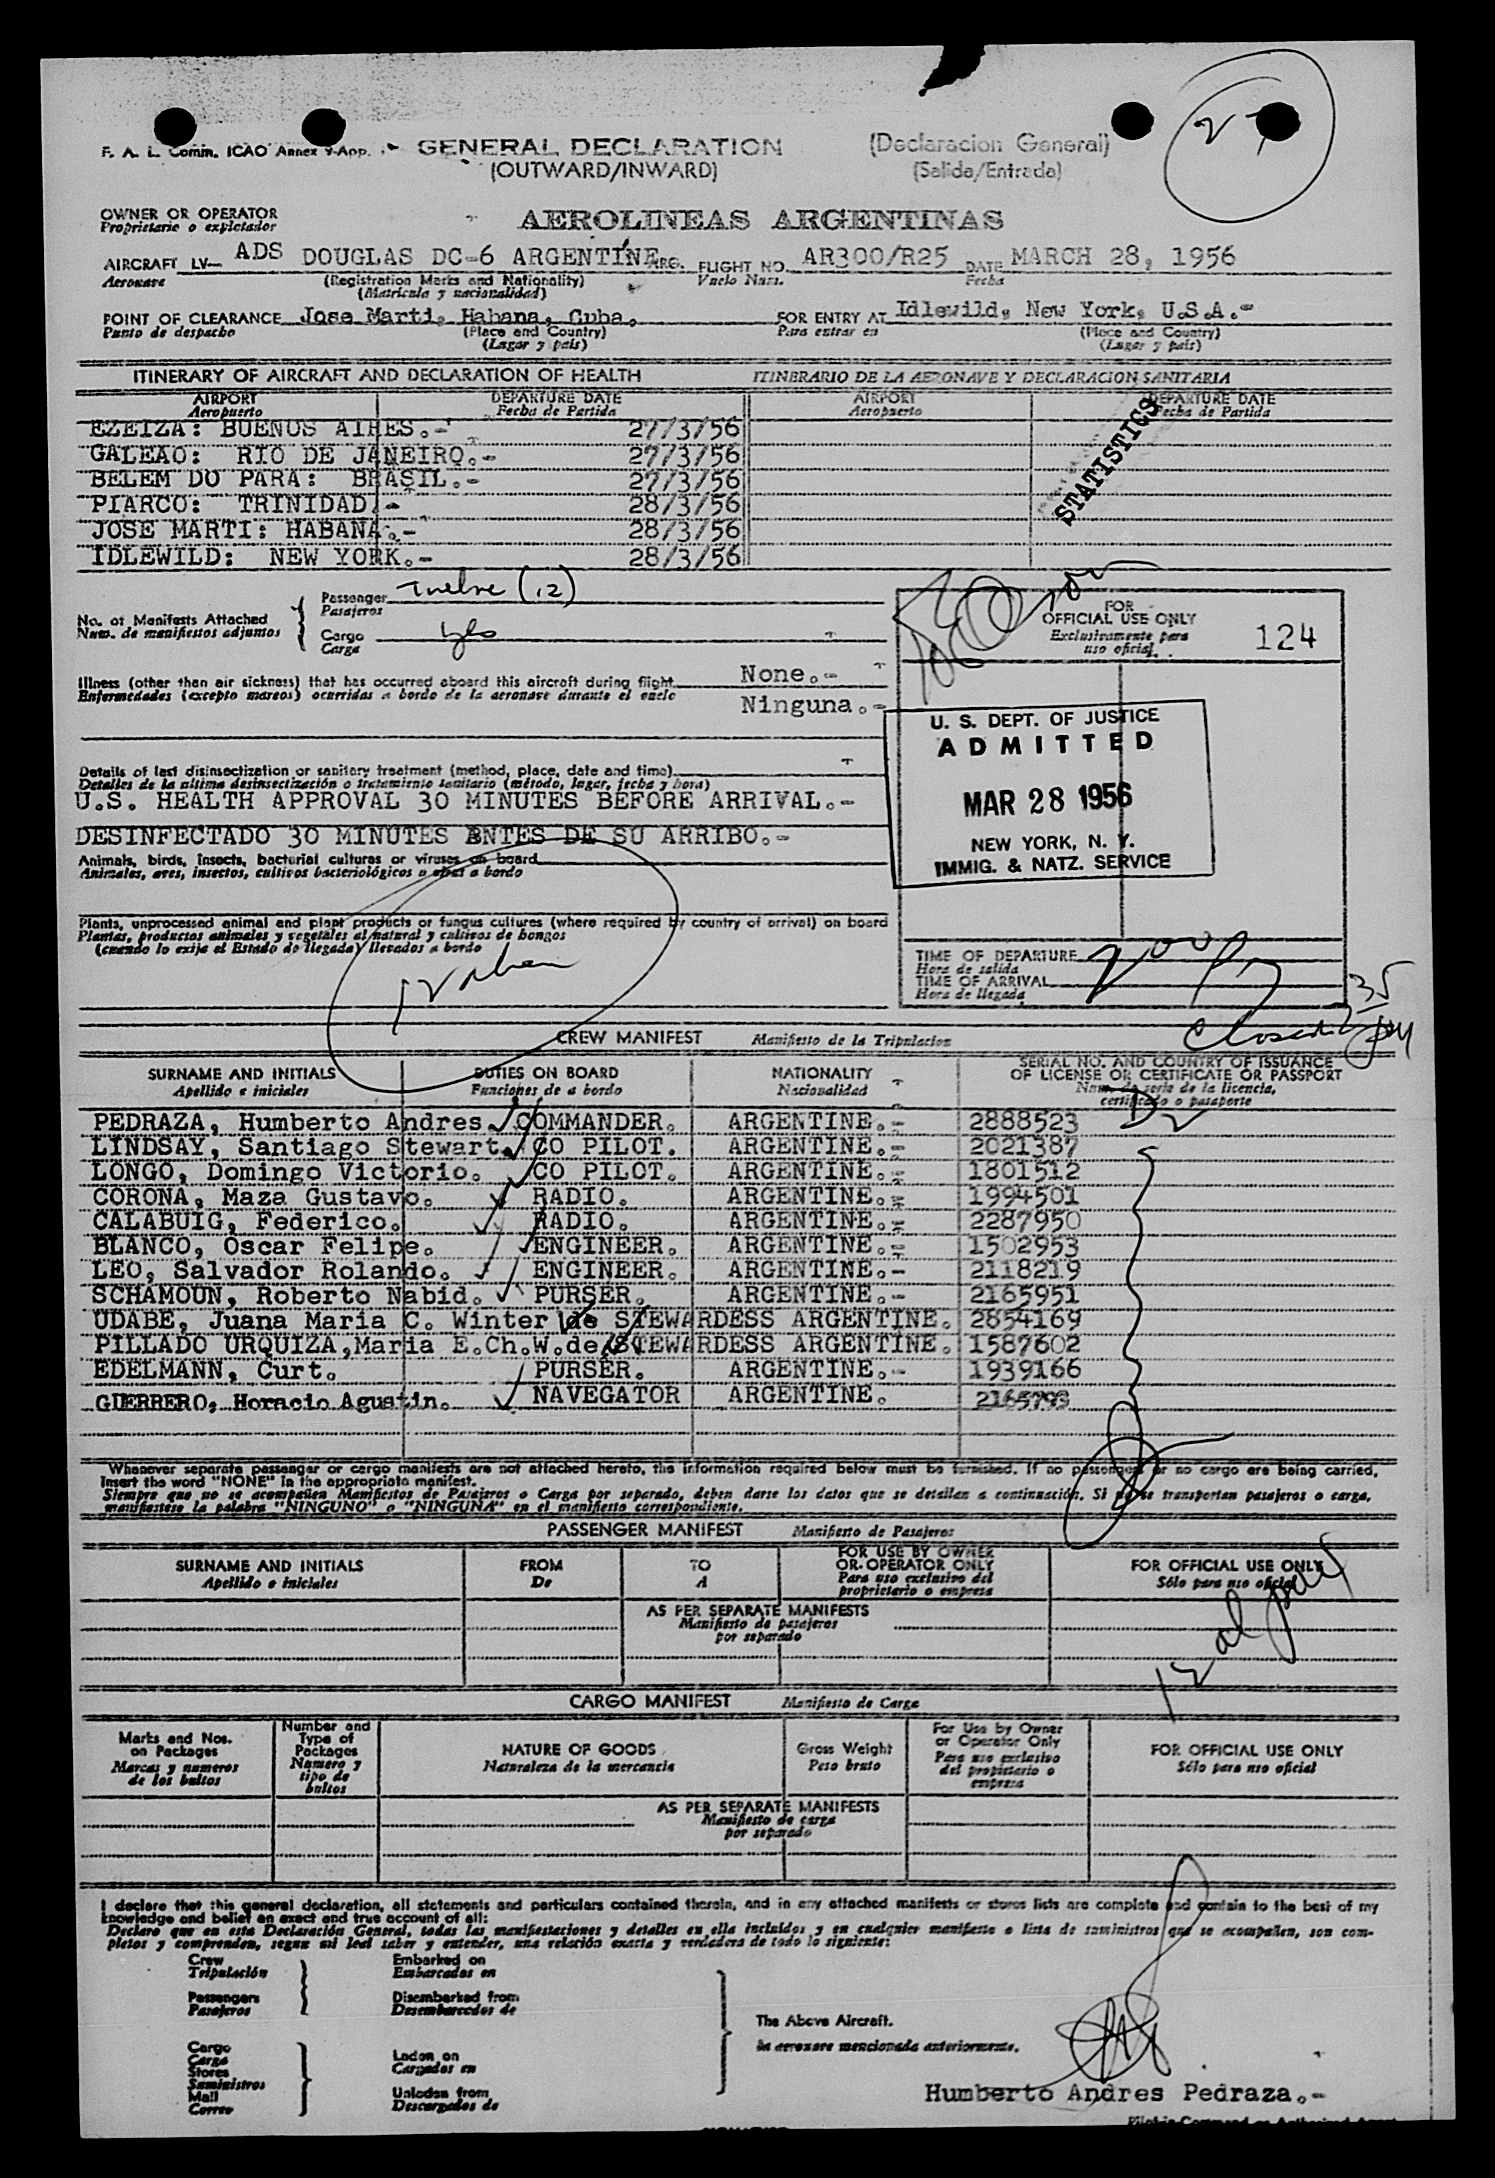 F. A. L. Comm. ICAO Annex 9-App. GENERAL DECLARATION (Declaracion General)
(OUTWARD/INWARD) (Salida/Entrada)
OWNER OR OPERATOR
Proprietario o explotador
AEROLINEAS ARGENTINAS
AIRCRAFT LV— ADS DOUGLAS DC-6 ARGENTINE ARG. FLIGHT NO. AR300/R25 DATE MARCH 28, 1956
Aeronave (Registration Marks and Nationality) Vuelo Num. Fecha
(Matricula y nacionalidad)
POINT OF CLEARANCE Jose Marti, Habana, Cuba. FOR ENTRY AT Idlewild, New York, U.S.A.-
Punto de despacho (Place and Country) Para entrar en (Place and Country)
(Lugar y pais) (Lugar y pais)
ITINERARY OF AIRCRAFT AND DECLARATION OF HEALTH ITINERARIO DE LA AERONAVE Y DECLARACION SANITARIA
AIRPORT DEPARTURE DATE AIRPORT DEPARTURE DATE
Aeropuerto Fecha de Partida Aeropuerto Fecha de Partida
EZEIZA: BUENOS AIRES.- 27/3/56
GALEAO: RIO DE JANEIRO.- 27/3/56
BELEM DO PARA: BRASIL.- 27/3/56
PIARCO: TRINIDAD.- 28/3/56
JOSE MARTI: HABANA.- 28/3/56
IDLEWILD: NEW YORK.- 28/3/56
STATISTICS
No. of Manifests Attached
Num. de manifiestos adjuntos
Passenger Twelve (12)
Pasajeros
Cargo yes
Carga
FOR
OFFICIAL USE ONLY
Exclusivamente para
uso oficial
124
Illness (other than air sickness) that has occurred aboard this aircraft during flight None.-
Enfermedades (excepto mareos) ocurridas a bordo de la aeronave durante el vuelo
Ninguna.-
U. S. DEPT. OF JUSTICE
ADMITTED
MAR 28 1956
NEW YORK, N. Y.
IMMIG. & NATZ. SERVICE
Details of last disinsectization or sanitary treatment (method, place, date and time)
Detalles de la ultima desinsectización o tratamiento sanitario (método, lugar, fecha y hora)
U.S. HEALTH APPROVAL 30 MINUTES BEFORE ARRIVAL.-
DESINFECTADO 30 MINUTES ANTES DE SU ARRIBO.-
Animals, birds, insects, bacterial cultures or viruses on board
Animales, aves, insectos, cultivos bacteriológicos o virus a bordo
Plants, unprocessed animal and plant products or fungus cultures (where required by country of arrival) on board
Plantas, productos animales y vegetales al natural y cultivos de hongos
(cuando lo exija el Estado de llegada) llevados a bordo
TIME OF DEPARTURE
Hora de salida
TIME OF ARRIVAL
Hora de llegada
Closed
CREW MANIFEST Manifiesto de la Tripulacion
SURNAME AND INITIALS DUTIES ON BOARD NATIONALITY SERIAL NO. AND COUNTRY OF ISSUANCE
OF LICENSE OR CERTIFICATE OR PASSPORT
Apellido e iniciales Funciones de a bordo Nacionalidad Num. de serie de la licencia,
certificado o pasaporte
PEDRAZA, Humberto Andres. COMMANDER. ARGENTINE.- 2888523
LINDSAY, Santiago Stewart. CO PILOT. ARGENTINE.- 2021387
LONGO, Domingo Victorio. CO PILOT. ARGENTINE.- 1801512
CORONA, Maza Gustavo. RADIO. ARGENTINE.- 1994501
CALABUIG, Federico. RADIO. ARGENTINE.- 2287950
BLANCO, Oscar Felipe. ENGINEER. ARGENTINE.- 1502953
LEO, Salvador Rolando. ENGINEER. ARGENTINE.- 2118219
SCHAMOUN, Roberto Nabid. PURSER. ARGENTINE.- 2165951
UDABE, Juana Maria C. Winter de STEWARDESS ARGENTINE. 2854169
PILLADO URQUIZA, Maria E.Ch.W.de STEWARDESS ARGENTINE. 1587602
EDELMANN, Curt. PURSER. ARGENTINE.- 1939166
GUERRERO, Horacio Agustin. NAVEGATOR ARGENTINE.
Whenever separate passenger or cargo manifests are not attached hereto, the information required below must be furnished. If no passengers or no cargo are being carried,
insert the word "NONE" in the appropriate manifest.
Siempre que no se acompañen Manifiestos de Pasajeros o Carga por separado, deben darse los datos que se detallan a continuación. Si no se transportan pasajeros o carga,
manifiestese la palabra "NINGUNO" o "NINGUNA" en el manifiesto correspondiente.
PASSENGER MANIFEST Manifiesto de Pasajeros
SURNAME AND INITIALS FROM TO FOR USE BY OWNER
OR OPERATOR ONLY FOR OFFICIAL USE ONLY
Apellido e iniciales De A Para uso exclusivo del
proprietario o empresa Sólo para uso oficial
AS PER SEPARATE MANIFESTS
Manifiesto de pasajeros
por separado
CARGO MANIFEST Manifiesto de Carga
Marks and Nos.
on Packages
Marcas y numeros
de los bultos
Number and
Type of
Packages
Numero y
tipo de
bultos
NATURE OF GOODS
Naturaleza de la mercancia
Gross Weight
Peso bruto
For Use by Owner
or Operator Only
Para uso exclusivo
del propietario o
empresa
FOR OFFICIAL USE ONLY
Sólo para uso oficial
AS PER SEPARATE MANIFESTS
Manifiesto de carga
por separado
I declare that this general declaration, all statements and particulars contained therein, and in any attached manifests or stores lists are complete and contain to the best of my
knowledge and belief an exact and true account of all:
Declaro que en esta Declaración General, todas las manifestaciones y detalles en ella incluidos y en cualquier manifiesto o lista de suministros que se acompañen, son com-
pletos y comprenden, segun mi leal saber y entender, una relación exacta y verdadera de todo lo siguiente:
Crew
Tripulación
Passengers
Pasajeros
Embarked on
Embarcados en
Disembarked from
Desembarcados de
Cargo
Carga
Stores
Suministros
Mail
Correo
Laden on
Cargados en
Unladen from
Descargados de
The Above Aircraft.
la aeronave mencionada anteriormente.
Humberto Andres Pedraza.-